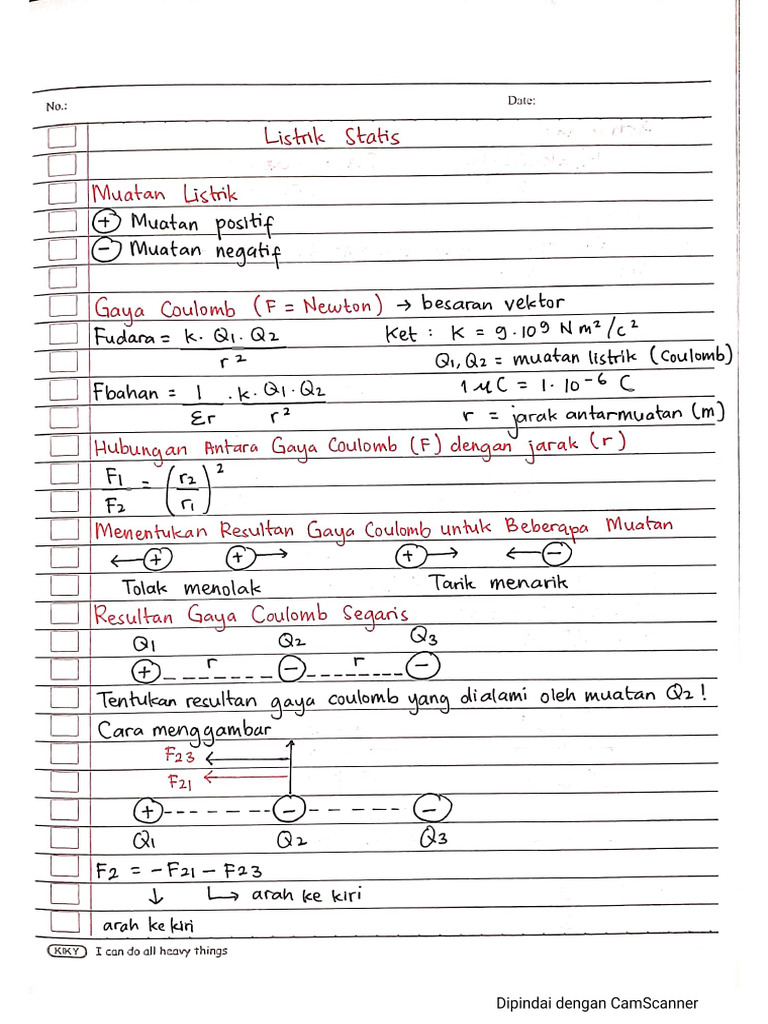 No.: Date:
Listrik Statis
Muatan Listrik
+ Muatan positif
- Muatan negatif
Gaya Coulomb (F = Newton) → besaran vektor
Fudara = k. Q1. Q2 / r² Ket : K = 9.10⁹ Nm²/c²
Q1, Q2 = muatan listrik (Coulomb)
Fbahan = 1/εr . k. Q1. Q2 / r² 1 μC = 1. 10⁻⁶ C
r = jarak antarmuatan (m)
Hubungan Antara Gaya Coulomb (F) dengan jarak (r)
F1/F2 = (r2/r1)²
Menentukan Resultan Gaya Coulomb untuk Beberapa Muatan
← + + → + → ← -
Tolak menolak Tarik menarik
Resultan Gaya Coulomb Segaris
Q1 Q2 Q3
+ r - r -
Tentukan resultan gaya coulomb yang dialami oleh muatan Q2!
Cara menggambar
F23 ←
F21 ←
+ - -
Q1 Q2 Q3
F2 = -F21 - F23
↓ ↳ arah ke kiri
arah ke kiri
KIKY I can do all heavy things
Dipindai dengan CamScanner